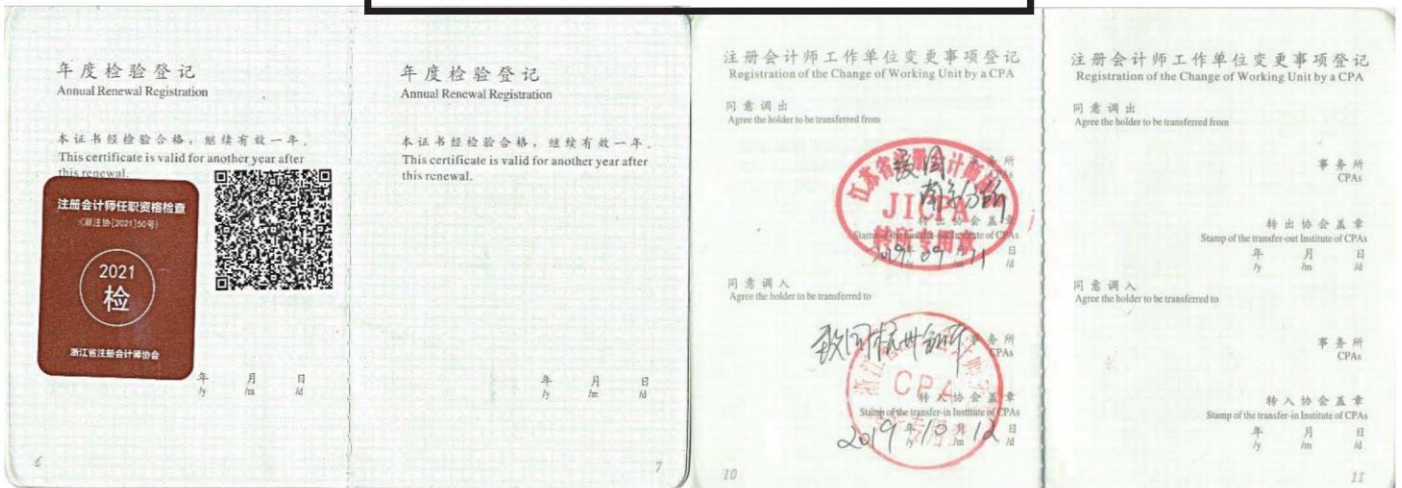 年度检验登记
Annual Renewal Registration
本证书经检验合格，继续有效一年.
This certificate is valid for another year after
this renewal.
注册会计师任职资格检查
(浙注协[2021]50号)
2021
检
浙江省注册会计师协会
年 月 日
/y /m /d
6
年度检验登记
Annual Renewal Registration
本证书经检验合格，继续有效一年.
This certificate is valid for another year after
this renewal.
年 月 日
/y /m /d
7
注册会计师工作单位变更事项登记
Registration of the Change of Working Unit by a CPA
同意调出
Agree the holder to be transferred from
江苏省注册会计师协会
JICPA
转所专用章
事务所
CPAs
转出协会盖章
Stamp of the transfer-out Institute of CPAs
2019年 09月 日
/y /m /d
同意调入
Agree the holder to be transferred to
事务所
CPAs
CPA
转入协会盖章
Stamp of the transfer-in Institute of CPAs
2019年 10月 12日
/y /m /d
10
注册会计师工作单位变更事项登记
Registration of the Change of Working Unit by a CPA
同意调出
Agree the holder to be transferred from
事务所
CPAs
转出协会盖章
Stamp of the transfer-out Institute of CPAs
年 月 日
/y /m /d
同意调入
Agree the holder to be transferred to
事务所
CPAs
转入协会盖章
Stamp of the transfer-in Institute of CPAs
年 月 日
/y /m /d
11